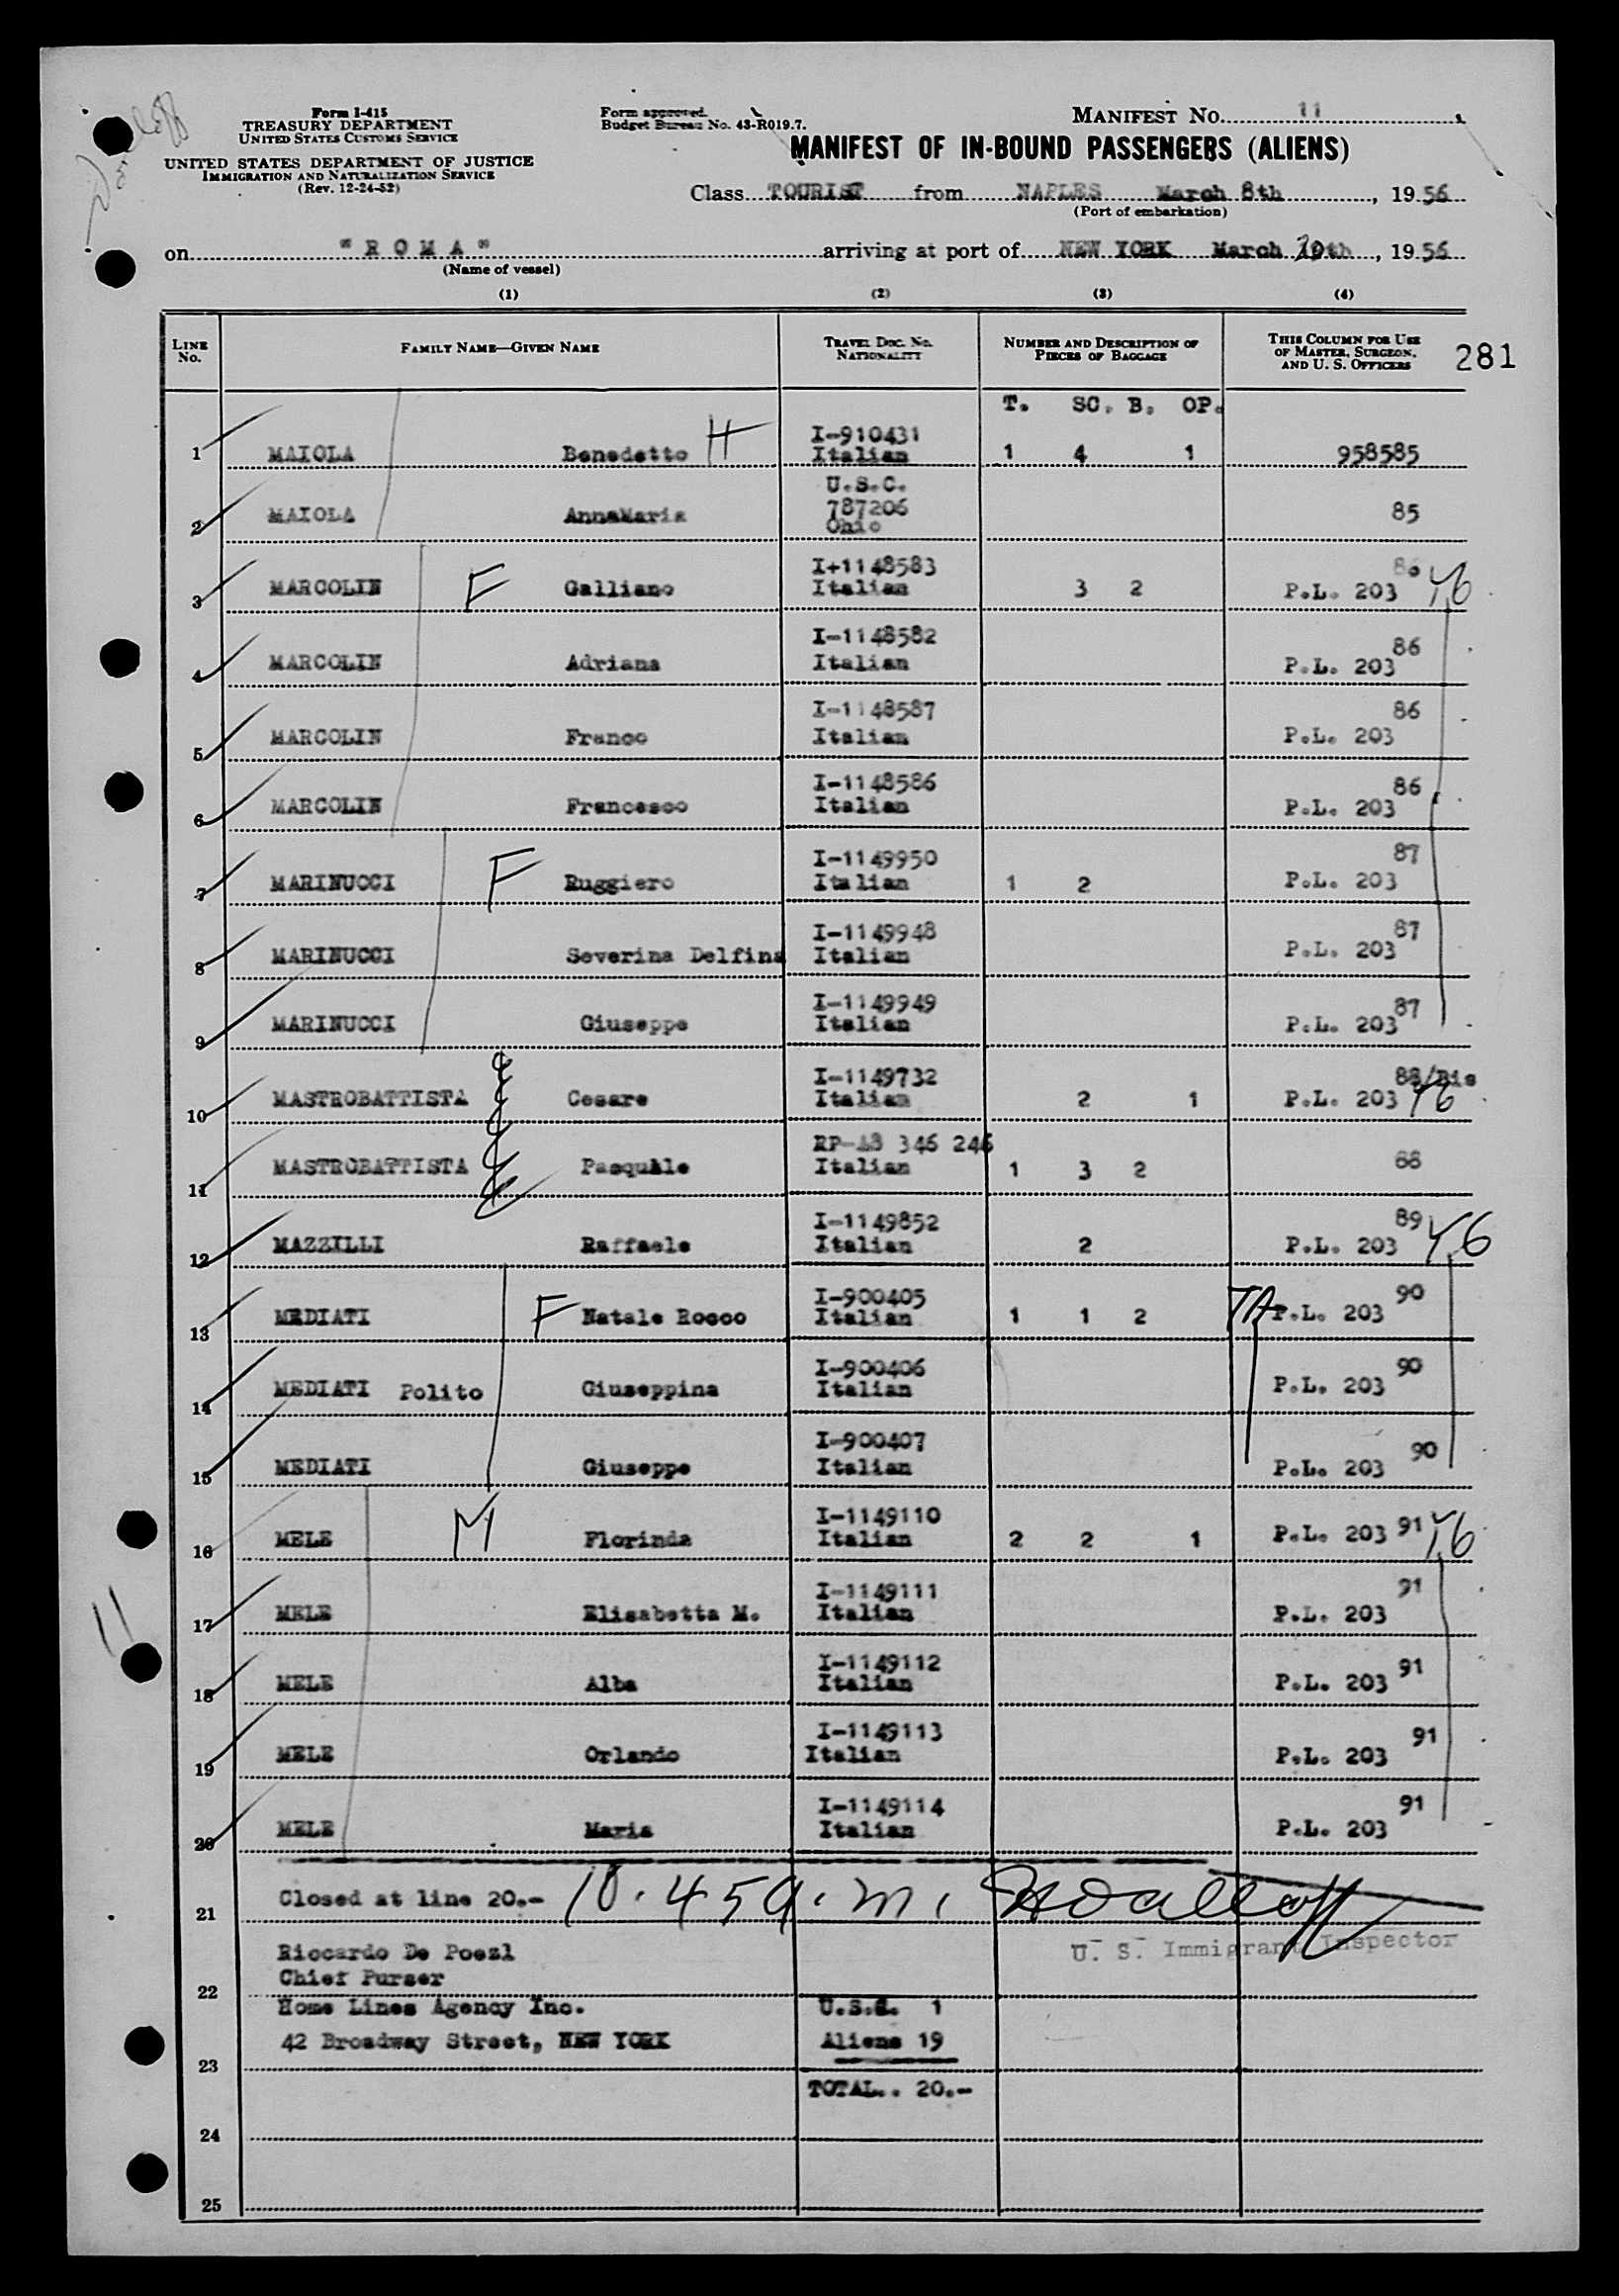 Form I-415
TREASURY DEPARTMENT
UNITED STATES CUSTOMS SERVICE
UNITED STATES DEPARTMENT OF JUSTICE
IMMIGRATION AND NATURALIZATION SERVICE
(Rev. 12-24-52)
Form approved.
Budget Bureau No. 43-R019.7.
MANIFEST No. 11
MANIFEST OF IN-BOUND PASSENGERS (ALIENS)
Class TOURIST from NAPLES March 8th, 1956
(Port of embarkation)
on "ROMA" arriving at port of NEW YORK March th, 1956
(Name of vessel)
(1) (2) (3) (4)
LINE No. FAMILY NAME—GIVEN NAME TRAVEL DOC. No. NATIONALITY NUMBER AND DESCRIPTION OF PIECES OF BAGGAGE THIS COLUMN FOR USE OF MASTER, SURGEON, AND U. S. OFFICERS 281
T. SC. B. OP.
1 MAIOLA Benedetto H I-910431 Italian 1 4 1 958585
2 MAIOLA AnnaMaria U.S.C. 787206 Ohio 85
3 MARCOLIN F Galliano I+1148583 Italian 3 2 86 P.L. 203
4 MARCOLIN Adriana I-1148582 Italian 86 P.L. 203
5 MARCOLIN Franco I-1148587 Italian 86 P.L. 203
6 MARCOLIN Francesco I-1148586 Italian 86 P.L. 203
7 MARINUCCI F Ruggiero I-1149950 Italian 1 2 87 P.L. 203
8 MARINUCCI Severina Delfina I-1149948 Italian 87 P.L. 203
9 MARINUCCI Giuseppe I-1149949 Italian 87 P.L. 203
10 MASTROBATTISTA Cesare I-1149732 Italian 2 1 88/Bis P.L. 203
11 MASTROBATTISTA Pasquale RP-AB 346 246 Italian 1 3 2 88
12 MAZZILLI Raffaele I-1149852 Italian 2 89 P.L. 203
13 MEDIATI F Natale Rocco I-900405 Italian 1 1 2 90 P.L. 203
14 MEDIATI Polito Giuseppina I-900406 Italian 90 P.L. 203
15 MEDIATI Giuseppe I-900407 Italian 90 P.L. 203
16 MELE M Florinda I-1149110 Italian 2 2 1 P.L. 203 91
17 MELE Elisabetta M. I-1149111 Italian 91 P.L. 203
18 MELE Alba I-1149112 Italian 91 P.L. 203
19 MELE Orlando I-1149113 Italian 91 P.L. 203
20 MELE Maria I-1149114 Italian 91 P.L. 203
21 Closed at line 20.- 10.45 a.m.
U. S. Immigrant Inspector
Riccardo De Poezl
22 Chief Purser
Home Lines Agency Inc. U.S.C. 1
23 42 Broadway Street, NEW YORK Aliens 19
TOTAL.. 20.-
24
25
11